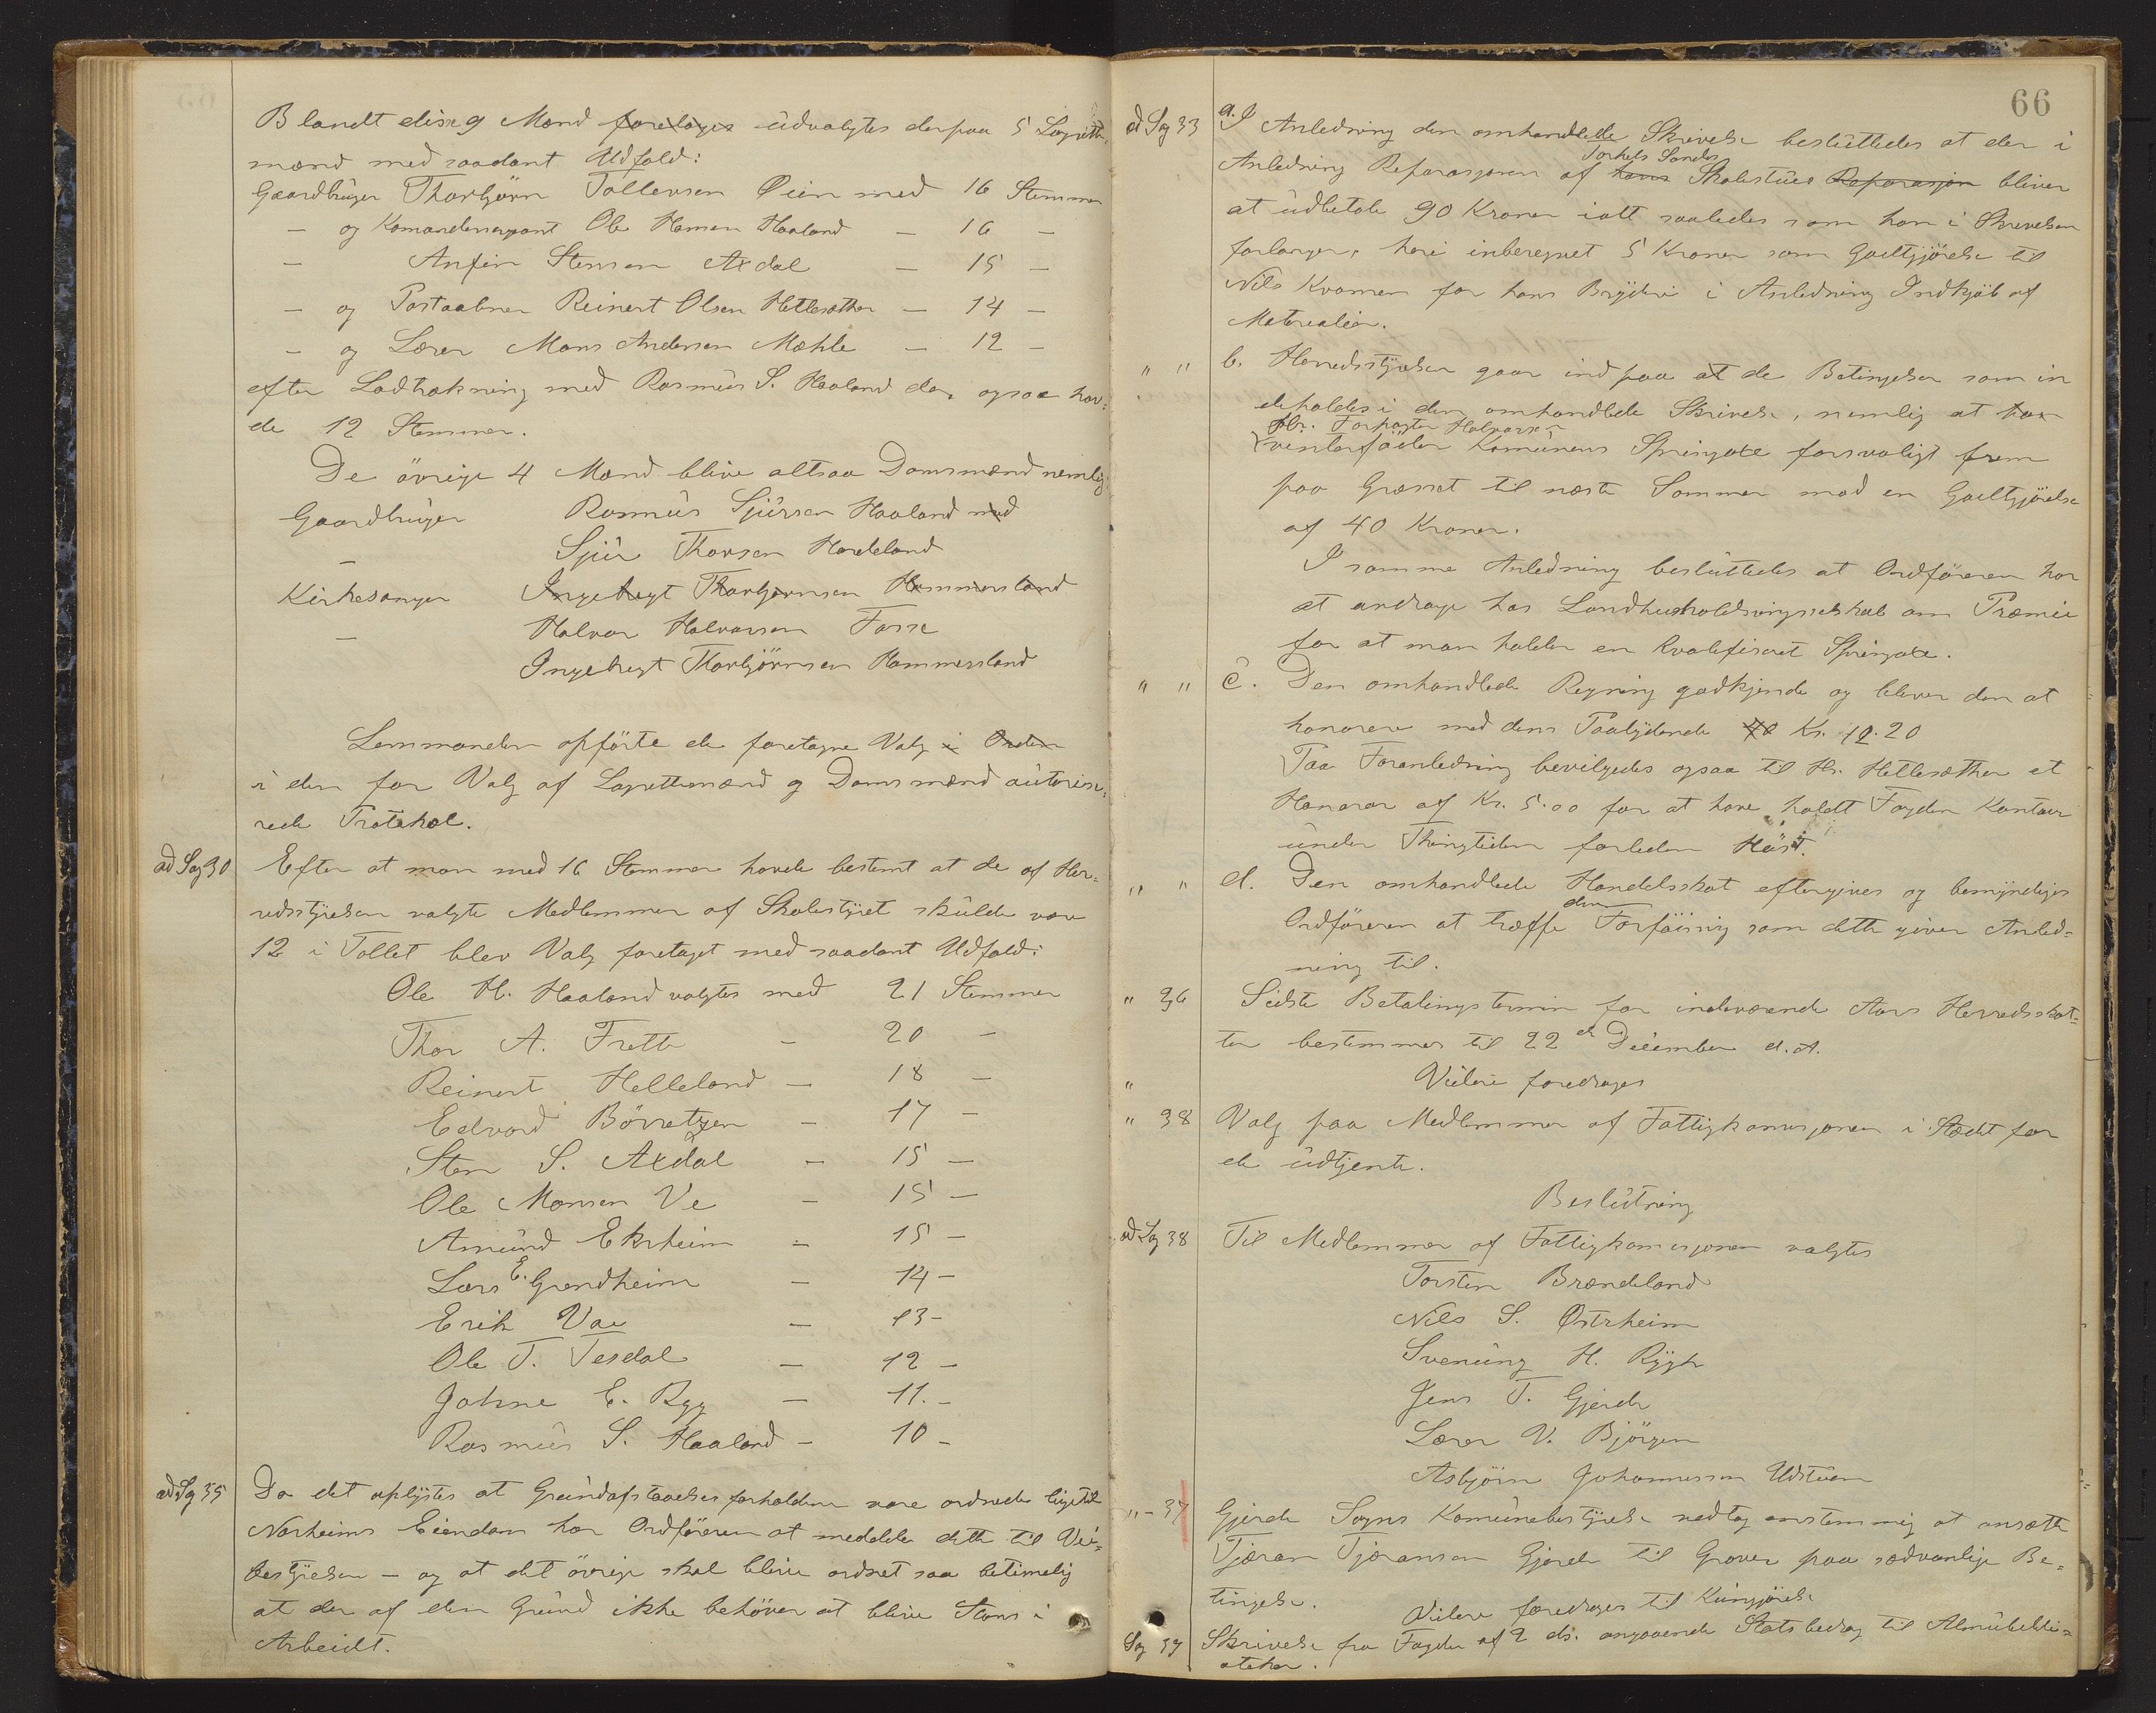 Blandt disse 9 Mænd foretages udvalgtes derpaa 5 Lagrettes
mænd med saadant Udfald:
Gaardbruger Thorbjörn Tollevsen Øien med 16 Stemmer
— og Komandersergant Ole Hansen Haaland — 16 —
— Anfin Stensen Axdal — 15 —
— og Postaabner Reinert Olsen Hettesæther — 14 —
— og Lærer Mons Andersen Mæhle — 12 —
efter Lodtrækning med Rasmus S. Haaland der ogsaa hav-
de 12 Stemmer.
De övrige 4 Mænd blive altsaa Domsmænd nemlig
Gaardbruger Rasmus Sjursen Haaland med
— Sjur Thorsen Hardeland
Kirkesanger Ingebregt Thorbjørnsen Hammersland
— Halvor Halvorsen Fosse
Ingebregt Thorbjörnsen Hammersland
Lensmanden opförte de foretagne Valg i Orden
i den for Valg af Lagrettemænd og Domsmænd autorise-
rede Protokol.
ad Sag 30 Efter at man med 16 Stemmer havde bestemt at de af Her-
redsstyrelsen valgte Medlemmer af Skolestyret skulde være
12 i Tallet blev Valg foretaget med saadant Udfald:
Ole H. Haaland valgtes med 21 Stemmer
Thor A. Frette - 20 —
Reinert Helleland — 18 —
Edvard Börretzen — 17 —
Sten S. Axdal — 15 —
Ole Monsen Ve — 15 —
Amund Ekrheim — 15 —
Lars E. Grendheim — 14 —
Erik Vae — 13 -
Ole T. Tesdal — 12 —
Johne E. Ryg — 11. -
Rasmus S. Haaland — 10 -
ad Sag 35 Da det oplystes at Grundafstaaelses forholdene vare ordnede ligetil
Norheims Eiendom har Ordföreren at meddele dette til Vei-
bestyrelsen — og at det övrige skal blive ordnet saa betimelig
at der af den Grund ikke behöver at blive Stans i
Arbeidet.
66
ad Sag 33 a. I Anledning den omhandlede Skrivelse besluttedes at der i
Torkels Sandes
Anledning Reparasjonen af hans Skolestue Reparasjon bliver
at udbetale 90 Kroner ialt saaledes som han i Skrivelsen
forlanger, heri inberegnet 5 Kroner som Godtgjörelse til
Nils Kvamen for hans Bryderi i Anledning Indkjöb af
Materialier.
" " b. Herredsstyrelsen gaar ind paa at de Betingelser som in
deholdes i den omhandlede Skrivelse, nemlig at han
Hr. Forpagter Halvorsen
vinterföder Komunens Springoxe forsvarligt frem
paa Græsset til næste Sommer mod en Godtgjörelse
af 40 Kroner.
I samme Anledning besluttedes at Ordföreren har
at andrage hos Landhusholdningsselskab om Præmie
for at man holder en kvalifiseret Springoxe.
" " c. Den omhandlede Regning godkjendes og bliver den at
honorere med dens Paalydende 40 Kr. 12.20
Paa Foranledning bevilgedes ogsaa til Hr. Hettesæther et
Honorar af Kr. 5.00 for at have holdt Fogden Kontor
under Thingtiden forleden Höst.
" " d. Den omhandlede Handelsskat eftergives og bemyndiges
den
Ordföreren at træffe Forföining som dette giver Anled-
ning til.
" 36 Sidste Betalingstermin for indeværende Aars Herredsskat-
ter bestemmes til 22de December d.A.
" Videre foredrages
" 38 Valg paa Medlemmer af Fattigkomisjonen i Stedet for
de udtjente.
Beslutning
ad Sag 38 Til Medlemmer af Fattigkomisjonen valgtes
Torsten Brændeland
Nils S. Østrheim
Svenung H. Rygh
Jens T. Gjerde
Lærer V. Bjørgen
Asbjörn Johannessen Udstuen
" - 37 Gjerde Sogns Komunebestyrelse vedtog enstemmig at ansætte
Tjæran Tjæransen Gjerde til Graver paa sædvanlige Be-
tingelser.
Videre foredrages til Kungjörelse
Sag 39 Skrivelse fra Fogden af 2 ds. angaaende Statsbedrag til Almubibli-
oteker.